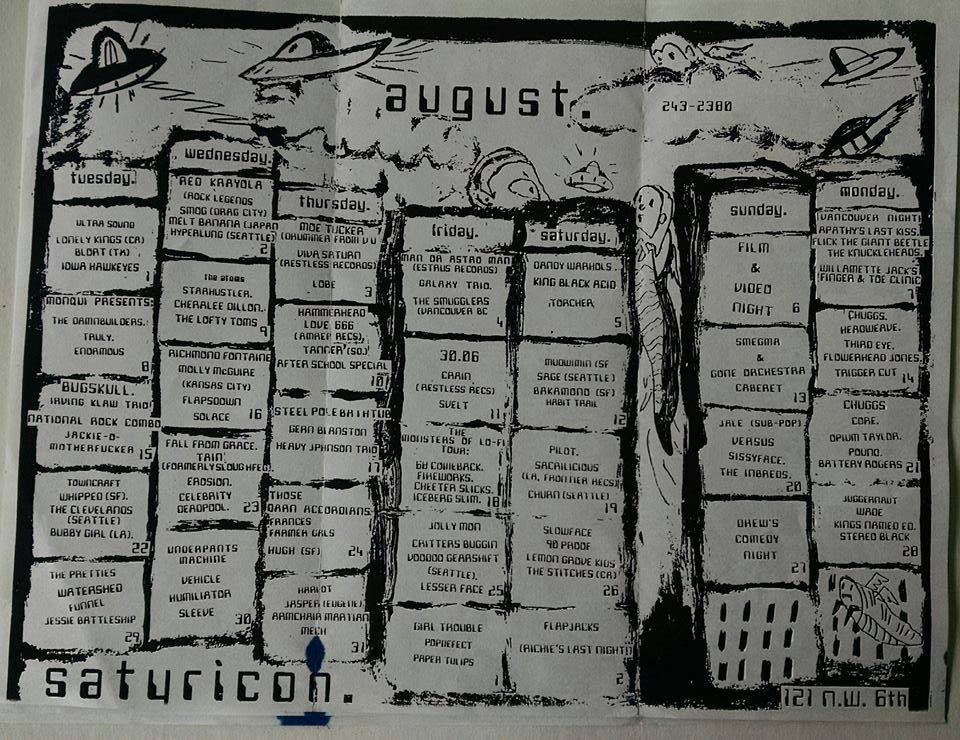 august.
243-2380
tuesday.
ULTRA SOUND
LONELY KINGS (CA)
BLORT (TX)
IOWA HAWKEYES 1
MONQUI PRESENTS:
THE DAMNBUILDERS.
TRULY.
ENORMOUS
8
BUGSKULL.
IRVING KLAW TRIO
NATIONAL ROCK COMBO
JACKIE-O-
MOTHERFUCKER 15
TOWNCRAFT
WHIPPED (SF).
THE CLEVELANDS
(SEATTLE)
BUBBY GIRL (LA).
22
THE PRETTIES
WATERSHED
FUNNEL
JESSIE BATTLESHIP
29
wednesday.
RED KRAYOLA
(ROCK LEGENDS
SMOG (DRAG CITY)
MELT BANANA (JAPAN
HYPERLUNG (SEATTLE)
2
the atoms
STARHUSTLER.
CHERALEE DILLON.
THE LOFTY TOMS 9
RICHMOND FONTAINE
MOLLY McGUIRE
(KANSAS CITY)
FLAPSDOWN
SOLACE 16
FALL FROM GRACE.
TAIN
(FORMERLY SLOUGHFEG).
EROSION.
CELEBRITY
DEADPOOL. 23
UNDERPANTS
MACHINE
VEHICLE
HUMILIATOR
SLEEVE 30
thursday.
MOE TUCKER
(DRUMMER FROM V U
VIVA SATURN
(RESTLESS RECORDS)
LOBE 3
HAMMERHEAD
LOVE 666
(AMREP RECS),
TANNER (SD.)
AFTER SCHOOL SPECIAL
10
STEEL POLE BATHTUB
GERN BLANSTON
HEAVY JOHNSON TRIO
17
THOSE
DARN ACCORDIANS
FRANCES
FRAMER GRLS
HUGH (SF) 24
HARLOT
JASPER (EUGENE)
ARMCHAIR MARTIAN
MECH
31
friday.
MAN OR ASTRO MAN
(ESTRUS RECORDS)
GALAXY TRIO.
THE SMUGGLERS
(VANCOUVER BC
4
30.06
CRAIN
(RESTLESS RECS)
SVELT 11
THE
MONSTERS OF LO-FI
TOUR:
68 COMEBACK.
FIREWORKS.
CHEETER SLICKS.
ICEBERG SLIM. 18
JOLLY MON
CRITTERS BUGGIN
VOODOO GEARSHIFT
(SEATTLE).
LESSER FACE 25
GIRL TROUBLE
POPDEFECT
PAPER TULIPS
1
saturday.
DANDY WARHOLS.
KING BLACK ACID
TORCHER.
5
MUDWIMIN (SF
SAGE (SEATTLE)
BAKAMONO (SF)
HABIT TRAIL
12
PILOT.
SACRILICIOUS
(LA, FRONTIER RECS)
CHURN (SEATTLE)
19
SLOWFACE
90 PROOF
LEMON GROVE KIDS
THE STITCHES (CA)
26
FLAPJACKS
(RICHIE'S LAST NIGHT!)
2
sunday.
FILM
&
VIDEO
NIGHT 6
SMEGMA
&
GONE ORCHESTRA
CABERET
13
JALE (SUB-POP)
VERSUS
SISSYFACE.
THE INBREDS.
20
DREW'S
COMEDY
NIGHT
27
monday.
VANCOUVER NIGHT!
APATHY'S LAST KISS.
FLICK THE GIANT BEETLE
THE KNUCKLEHEADS.
WILLAMETTE JACK'S
FINGER & TOE CLINIC
7
CHUGGS.
HEADWEAVE.
THIRD EYE.
FLOWERHEAD JONES.
TRIGGER CUT 14
CHUGGS
CORE.
OPIUM TAYLOR.
POUND.
BATTERY ROGERS 21
JUGGERNAUT
WADE
KINGS NAMED ED.
STEREO BLACK
28
satyricon.
121 N.W. 6th